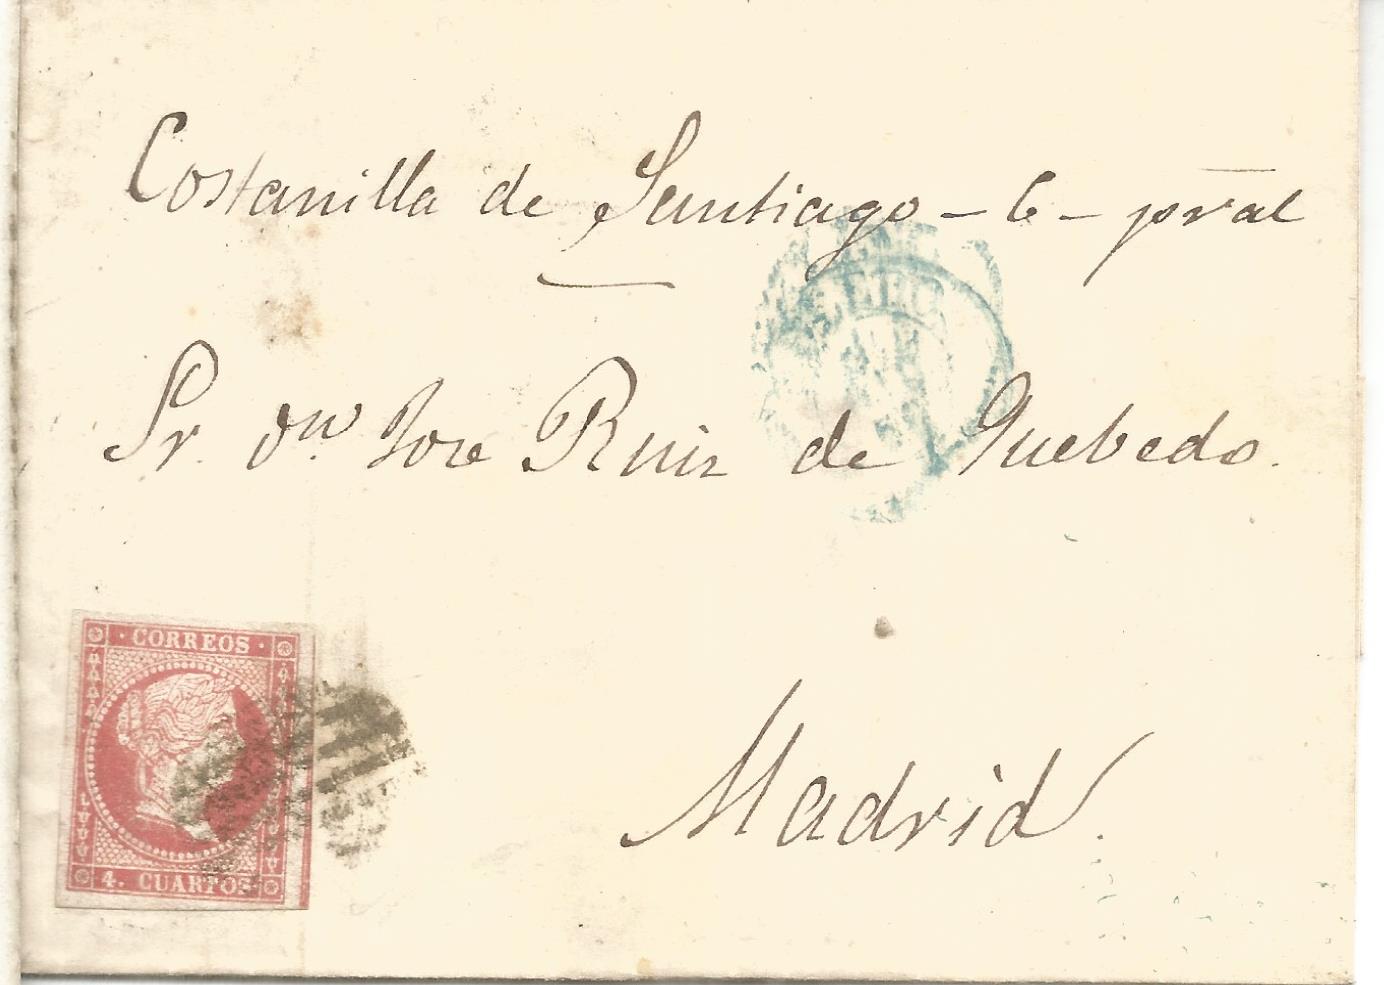 Costanilla de Santiago - 6 - pral
Sr. Dn Jose Ruiz de Quebedo.
Madrid.
· CORREOS ·
4. CUARTOS